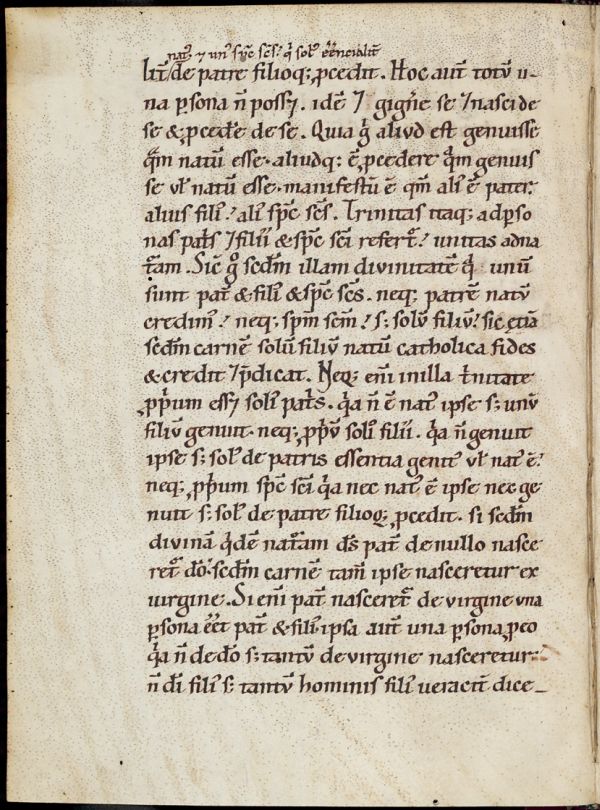 nat᷒ ⁊ un᷒ sp̄c sc̄s· q̄ sol᷒ eēncialit̄
lit̄ de patre filioq; ꝓcedit. Hoc aut̄ totū u-
na ꝑsona n̄ poss&. idē ⁊ gign̄e se ⁊ nasci de
se & ꝓced̄e de se. Quia g̊ aliud est genuisse
q̄m natū esse. aliudq; ē ꝓcedere q̄m genuis
se ul̄ natū esse. manifestū ē qm̄ ali᷒ ē pater.
alius fili᷒. ali᷒ sp̄c sc̄s. Trinitas itaq; ad ꝑso
nas pat̄s ⁊ filii & sp̄c sc̄i refert᷑. unitas ad na
t᷑am. Sic̄ g̊ scd̄m illam divinitatē q̄ unū
sunt pat̄ & fili᷒ & sp̄c sc̄s. neq; patrē natū
credim᷒. neq; sp̄m sc̄m. s; solū filiū. sic etiā
scd̄m carnē solū filiū natū catholica fides
& credit ⁊ p̄dicat. Neq; eni̅ in illa t̄nitate
ꝓp̄um ess& soli᷒ pat̄s. q̄a n̄ ē nat᷒ ipse s; unū
filiū genuit. neq; ꝓp̄ū soli᷒ filii. q̄a n̄ genuit
ipse s; sol᷒ de patris essentia genit᷒ ul̄ nat᷒ ē.
neq; ꝓp̄um sp̄c sc̄i q̄a nec nat᷒ ē ipse nec ge
nuit s; sol᷒ de patre filioq; ꝓcedit. si scd̄m
divinā q̄dē nat᷑am ds̄ pat̄ de nullo nasce
ret᷑ dō. scd̄m carnē tam̄ ipse nasceretur ex
uirgine. Si eni̅ pat̄ nasceret᷑ de virgine una
ꝑsona eēt pat̄ & fili᷒. ipsa aut̄ una ꝑsona ꝓeo
q̄a n̄ de dō s; tantū de virgine nasceretur.
n̄ dī fili᷒ s; tantū hominis fili᷒ ueracit̄ dice-